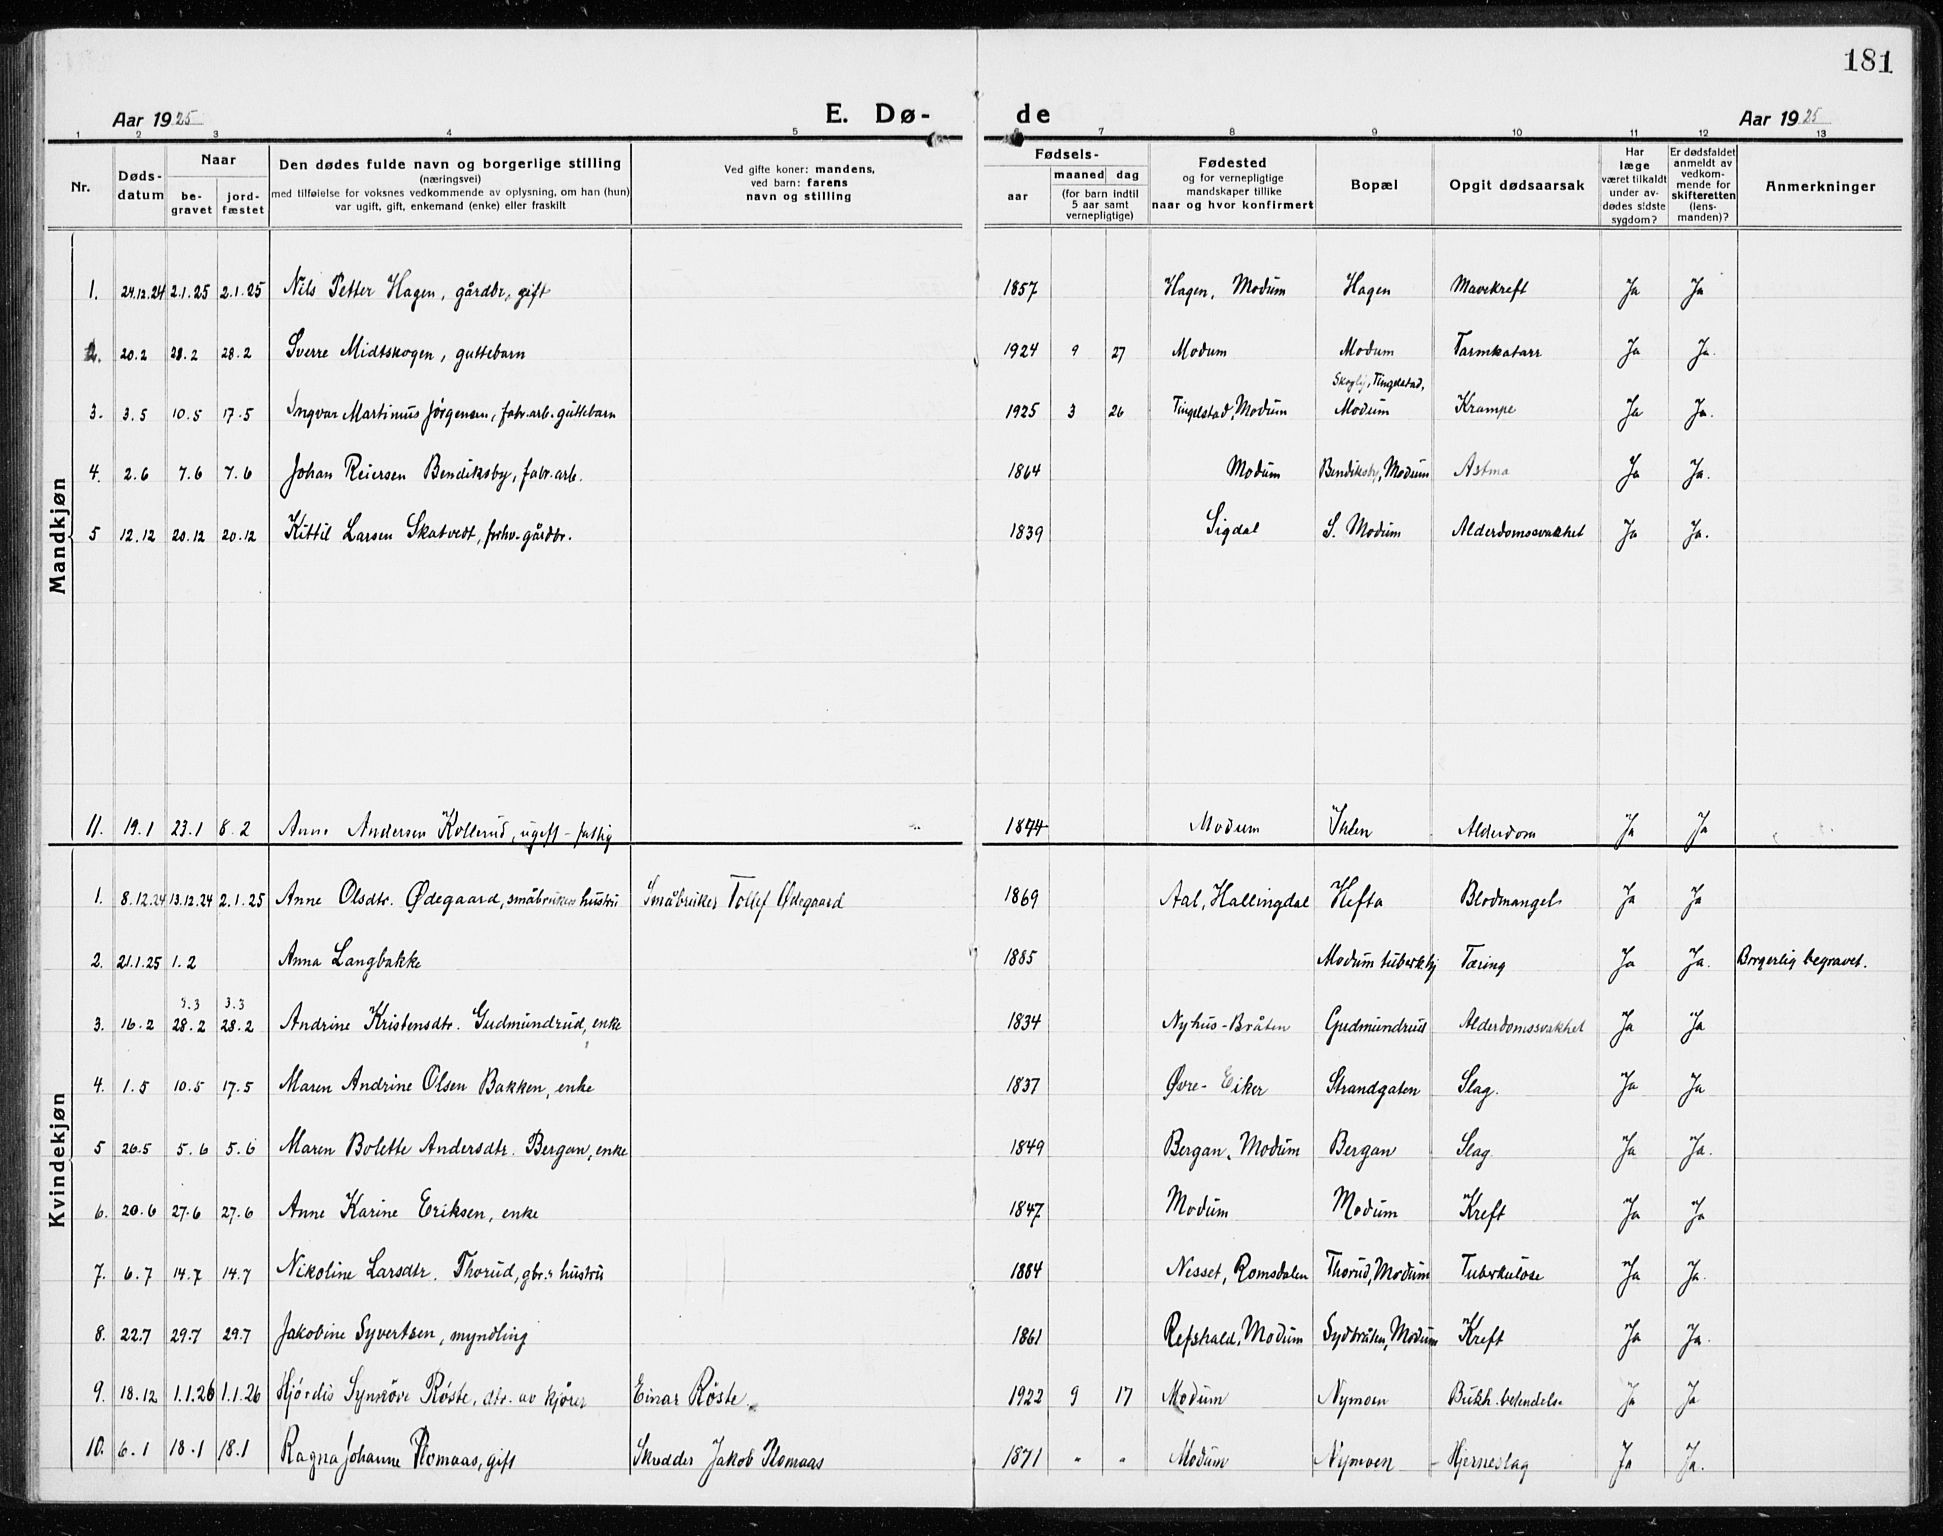 181
Aar 1925 E. Dø- de Aar 1925
1 2 3 4 5 6 7 8 9 10 11 12 13
Nr. Døds-datum Naar be-gravet jord-fæstet Den dødes fulde navn og borgerlige stilling (næringsvei) med tilføielse for voksnes vedkommende av oplysning, om han (hun) var ugift, gift, enkemand (enke) eller fraskilt Ved gifte koner: mandens, ved barn: farens navn og stilling Fødsels- aar maaned dag (for barn indtil 5 aar samt vernepligtige) Fødested og for vernepligtige mandskaper tillike naar og hvor konfirmert Bopæl Opgit dødsaarsak Har læge været tilkaldt under av-dødes sidste sygdom? Er dødsfaldet anmeldt av vedkom-mende for skifteretten (lens-manden)? Anmerkninger
Mandkjøn
1. 24.12.24 2.1.25 2.1.25 Nils Petter Hagen, gårdbr, gift 1857 Hagen, Modum Hagen Mavekreft Ja Ja
2. 20.2 28.2 28.2 Sverre Midtskogen, guttebarn 1924 9 27 Modum Modum Tarmkatarr Ja Ja.
3. 3.5 10.5 17.5 Ingvar Martinus Jörgensen, fabr.arb. guttebarn 1925 3 26 Tingelstad, Modum Skogly, Tingelstad, Modum Krampe Ja Ja.
4. 2.6 7.6 7.6 Johan Reiersen Bendiksby, fabr.arb. 1864 Modum Bendiksby, Modum Astma Ja Ja.
5 12.12 20.12 20.12 Kittil Larsen Skatvedt, forhv. gårdbr. 1839 Sigdal S. Modum Alderdomssvakhet Ja Ja.
11. 19.1 23.1 8.2 Anne Andersen Kollerud, ugift - fattig 1844 Modum Ihlen Alderdom Ja Ja
Kvindekjøn
1. 8.12.24 13.12.24 2.1.25 Anne Olsdtr. Ødegaard, småbrukers hustru Småbruker Tollef Ødegaard 1869 Aal, Hallingdal Hefta Blodmangel Ja Ja
2. 21.1.25 1.2 Anna Langbakke 1885 Modum tuberk.hj Tæring Ja Ja. Borgerlig begravet.
3.3 3.3
3. 16.2 28.2 28.2 Andrine Kristensdtr. Gudmundrud, enke 1834 Nyhus-Bråten Gudmundrud Alderdomssvakhet Ja Ja
4. 1.5 10.5 17.5 Maren Andrine Olsen Bakken, enke 1837 Øvre-Eiker Strandgaten Slag. Ja Ja
5 26.5 5.6 5.6 Maren Bolette Andersdtr. Bergan, enke 1849 Bergan, Modum Bergan Slag Ja Ja.
6. 20.6 27.6 27.6 Anne Karine Eriksen, enke 1847 Modum Modum Kreft Ja Ja
7. 6.7 14.7 14.7 Nikoline Larsdtr. Thorud, gbr.s hustru 1884 Nesset, Romsdalen Thorud, Modum Tuberkulose Ja Ja.
8. 22.7 29.7 29.7 Jakobine Syvertsen, myndling 1861 Refshald, Modum Sydbråten, Modum Kreft Ja Ja.
9. 18.12 1.1.26 1.1.26 Hjördis Synnöve Röste, dtr. av kjörer Einar Röste 1922 9 17 Modum Nymoen Bukh. betendelse Ja Ja
10. 6.1 18.1 18.1 Ragna Johanne Komaas, gift Skredder Jakob Komaas 1871 " " Modum Nymoen - Hjerneslag Ja Ja.